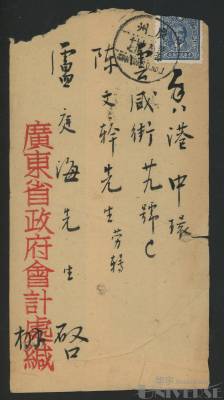 香港中環
雲咸街廿九號C
陳文幹先生勞轉
盧庭海先生 啟
廣東省政府會計處緘
華宇
UNIVERSE